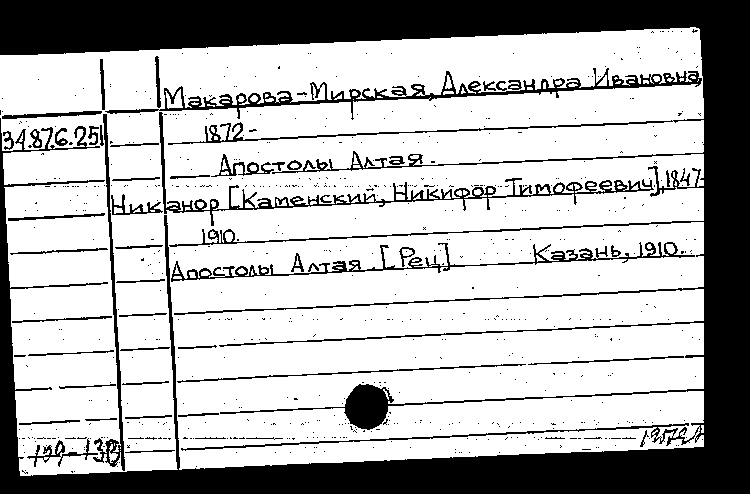 Макарова-Мирская, Александра Ивановна,
34.87.6.251 1872-
Апостолы Алтая.
Никанор [Каменский, Никифор Тимофеевич], 1847-
1910.
Апостолы Алтая. [Рец.] Казань, 1910.